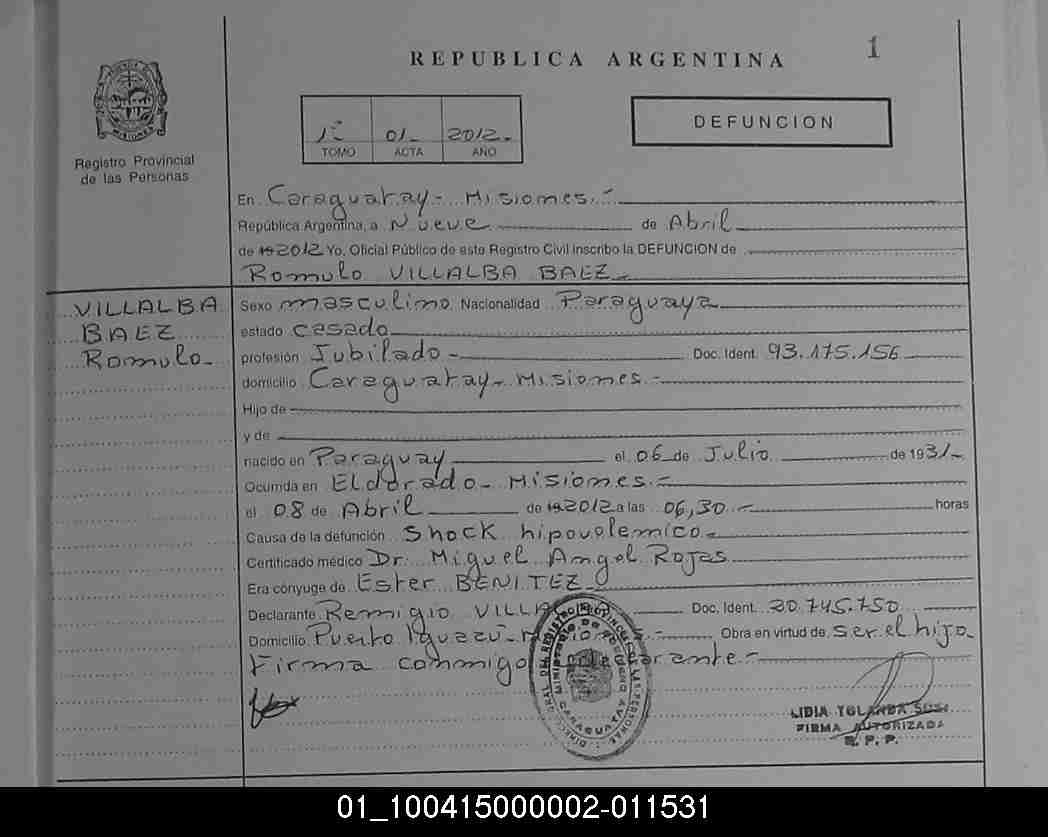 1
REPUBLICA ARGENTINA
PROVINCIA DE
MISIONES
Registro Provincial
de las Personas
1º 01- 2012-
TOMO ACTA AÑO
DEFUNCION
En Caraguatay - Misiones.-
República Argentina, a Nueve de Abril
de 19 2012 Yo, Oficial Público de este Registro Civil inscribo la DEFUNCION de
Romulo VILLALBA BAEZ
VILLALBA
BAEZ
Romulo-
Sexo masculino Nacionalidad Paraguaya
estado casado
profesión Jubilado - Doc. Ident. 93.175.156
domicilio Caraguatay - Misiones -
Hijo de
y de
nacido en Paraguay el 06 de Julio de 1931-
Ocurrida en Eldorado - Misiones -
el 08 de Abril de 19 2012 a las 06,30 - horas
Causa de la defunción Shock hipovolemico -
Certificado médico Dr. Miguel Angel Rojas
Era cónyuge de Ester BENITEZ
Declarante Remigio VILLALBA Doc. Ident. 20.745.750
Domicilio Puerto Iguazú - Misiones - Obra en virtud de ser el hijo
Firma conmigo el declarante -
CARAGUATAY
LIDIA YOLANDA SOSA
FIRMA AUTORIZADA
R. P. P.
01_100415000002-011531